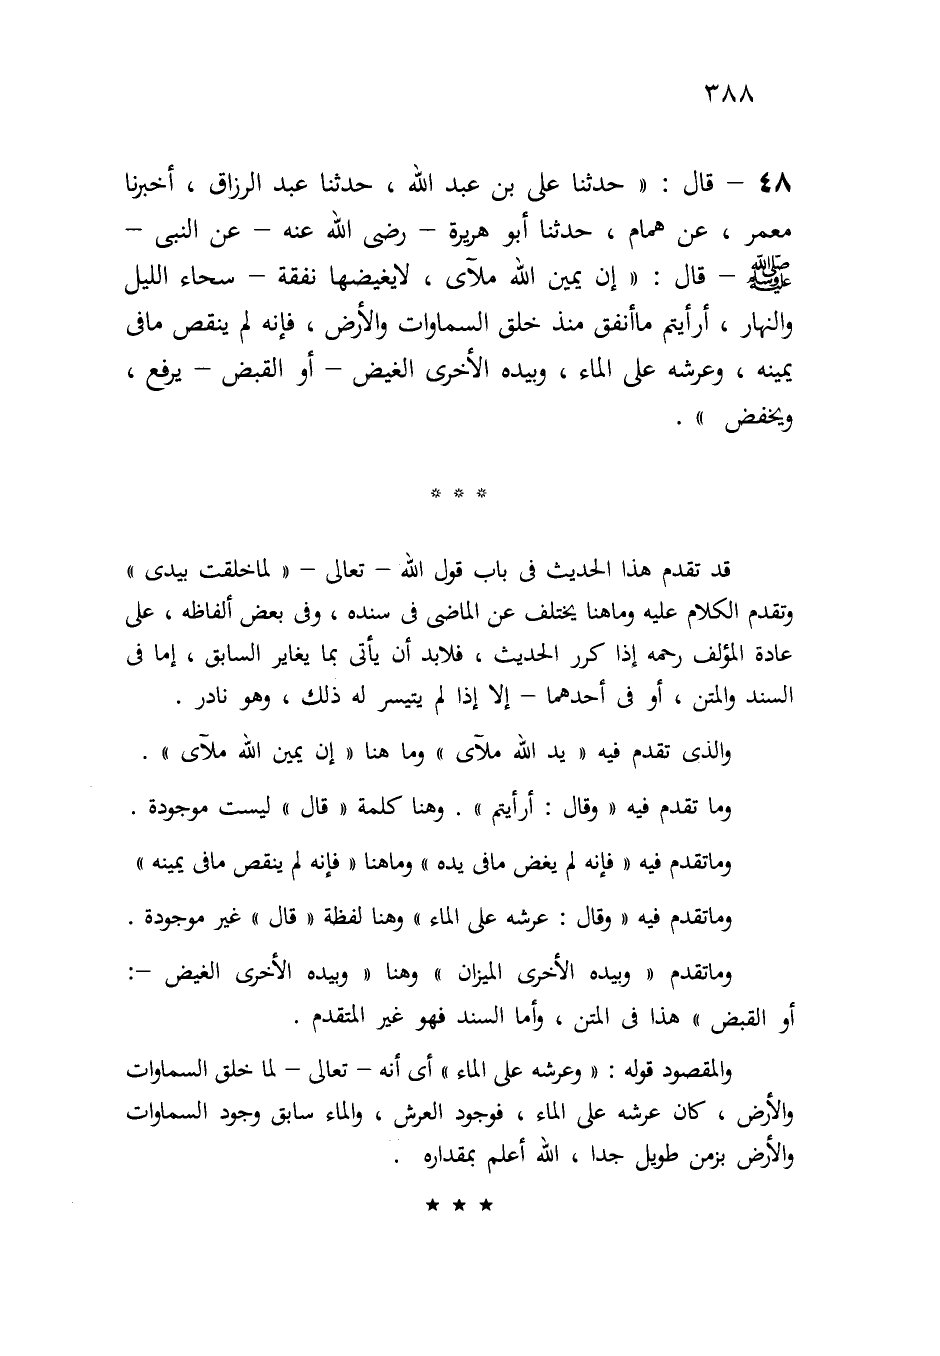 ٣٨٨
٤٨ – قال : « حدثنا على بن عبد الله ، حدثنا عبد الرزاق ، أخبرنا
معمر ، عن همام ، حدثنا أبو هريرة – رضى الله عنه – عن النبى –
ﷺ – قال : « إن يمين الله ملآى ، لايغيضها نفقة – سحاء الليل
والنهار ، أرأيتم ماأنفق منذ خلق السماوات والأرض ، فإنه لم ينقص مافى
يمينه ، وعرشه على الماء ، وبيده الأخرى الغيض – أو القبض – يرفع ،
ويخفض » .
* * *
قد تقدم هذا الحديث فى باب قول الله – تعالى – « لماخلقت بيدى »
وتقدم الكلام عليه وماهنا يختلف عن الماضى فى سنده ، وفى بعض ألفاظه ، على
عادة المؤلف رحمه إذا كرر الحديث ، فلابد أن يأتى بما يغاير السابق ، إما فى
السند والمتن ، أو فى أحدهما – إلا إذا لم يتيسر له ذلك ، وهو نادر .
والذى تقدم فيه « يد الله ملآى » وما هنا « إن يمين الله ملآى » .
وما تقدم فيه « وقال : أرأيتم » . وهنا كلمة « قال » ليست موجودة .
وماتقدم فيه « فإنه لم يغض مافى يده » وماهنا « فإنه لم ينقص مافى يمينه »
وماتقدم فيه « وقال : عرشه على الماء » وهنا لفظة « قال » غير موجودة .
وماتقدم « وبيده الأخرى الميزان » وهنا « وبيده الأخرى الغيض –:
أو القبض » هذا فى المتن ، وأما السند فهو غير المتقدم .
والمقصود قوله : « وعرشه على الماء » أى أنه – تعالى – لما خلق السماوات
والأرض ، كان عرشه على الماء ، فوجود العرش ، والماء سابق وجود السماوات
والأرض بزمن طويل جدا ، الله أعلم بمقداره .
★ ★ ★